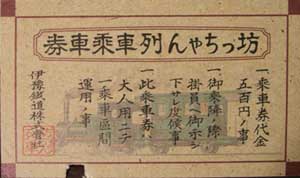 坊っちゃん列車乗車券
一乗車券代金
五百円ノ事
一御乗降ノ際
掛員ヘ御示シ
下サレ度候事
一此乗車券ハ
大人用ニテ
一乗車区間
運用ノ事
伊豫鐵道株式會社